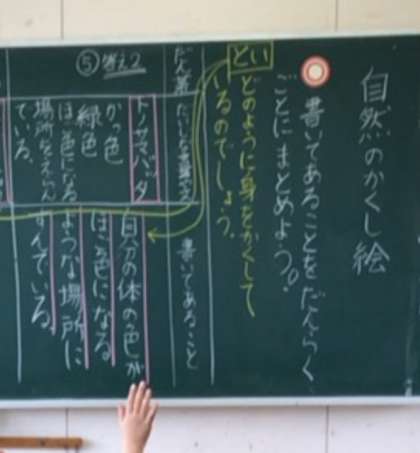 自然のかくし絵
書いてあることをだんらく
ごとにまとめよう。
とい
どのように身をかくして
いるのでしょう。
だん落
書いてあること
⑤答え2
トノサマバッタ
かっ色
緑色
ほご色になる
場所をえらん
でいる。
自分の体の色が
ほご色になる
ような場所に
すんでいる。